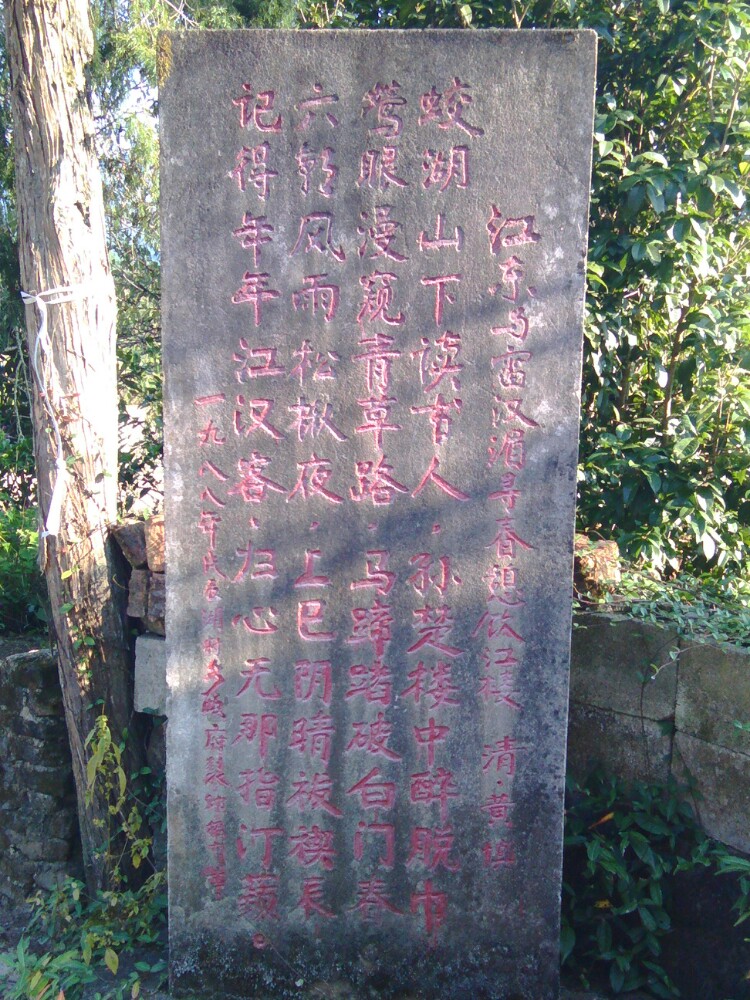 江东与雷汉湄寻春憩饮江楼 清·黄慎
蛟湖山下读书人，孙楚楼中醉脱巾，
莺眼漫窥青草路，马蹄踏破白门春
六朝风雨松楸夜，上巳阴晴祓禊辰，
记得年年江汉客，归心无那指汀蘋。
一九八八年戊辰